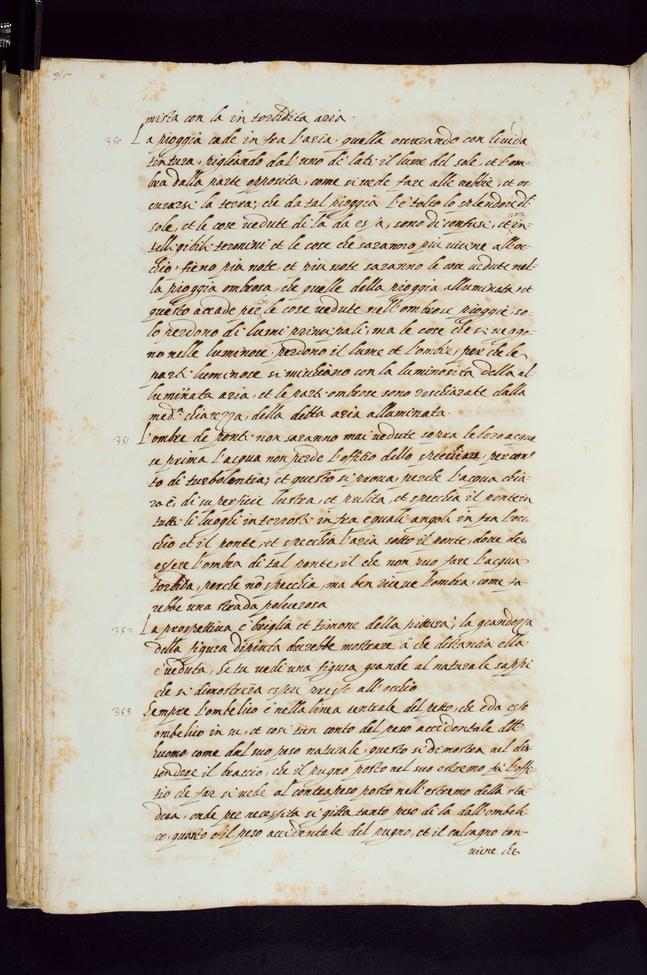 mista con la in torbidita aria.
350 La pioggia cade in fra l'aria, quella oscurando con livida
tintura, pigliando dal'uno de lati il lume del sole, et l'om-
bra dalla parte opposita, come si vede fare alle nebbie, et os
curarsi la terra, che da tal pioggia l'e tolto lo splendore del
sole, et le cose vedute di la da essa, sono di confusi, et in-
non
telligibili termini et le cose che saranno piu vicine all'oc-
chio, fieno piu note, et piu note saranno le cose vedute nel-
la pioggia ombrosa, che quelle della pioggia alluminata, et
questo accade perche le cose vedute nell'ombrose pioggie, so-
lo perdono di lumi principali, ma le cose che si veggo-
no nelle luminose, perdono il lume et l'ombre, perche le
parti luminose si mischiano con la luminosita della al
luminata aria, et le parti ombrose sono rischiarate dalla
med.a chiarezza, della detta aria alluminata.
351 L'ombre de ponti non saranno mai vedute sopra le loro acque
se prima l'acqua non perde l'offitio dello specchiare, per con
to di turbolentia, et questo si prova, perche l'acqua chia-
ra è, di superficie lustra, et pulita, et specchia il ponte in
tutti li luoghi interposti infra equali angoli in fra l'oc
chio et il ponte, et specchia l'aria sotto il ponte, dove dee
essere l'ombra di tal ponte, il che non puo fare l'acqua
torbida, perche nō specchia, ma ben riceve l'ombra, come fa-
rebbe una strada polverosa
352 La prospettiva è briglia et timone della pittura, la grandezza
della figura dipinta dovrebbe mostrare à che distantia ella
è veduta, Se tu vedi una figura grande al naturale sappi
che si dimostrera esser presso all'occhio
353 Sempre l'ombelico è nella linea centrale del petto, che è da esso
ombelico in su, et cosi tien conto del peso accidentale dell'
huomo, come dal suo peso naturale, questo si dimostra nel dis
tendere il braccio, che il pugno posto nel suo estremo fà l'offi-
tio che far si vede al contrapeso posto nell'estremo della sta
dera, onde per necessita si gitta tanto peso di la dall'ombeli
co, quanto è il peso accidentale del pugno, et il calcagno con-
viene che